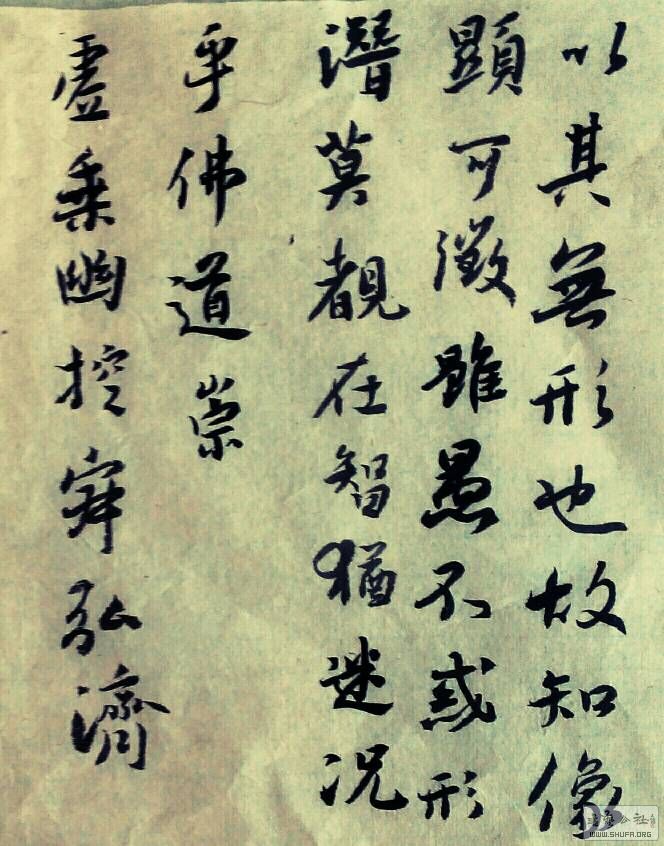 以其無形也故知像
顯可徵雖愚不惑形
潛莫覩在智猶迷況
乎佛道崇
虛乗幽控寂弘濟
WWW.SHUFA.ORG